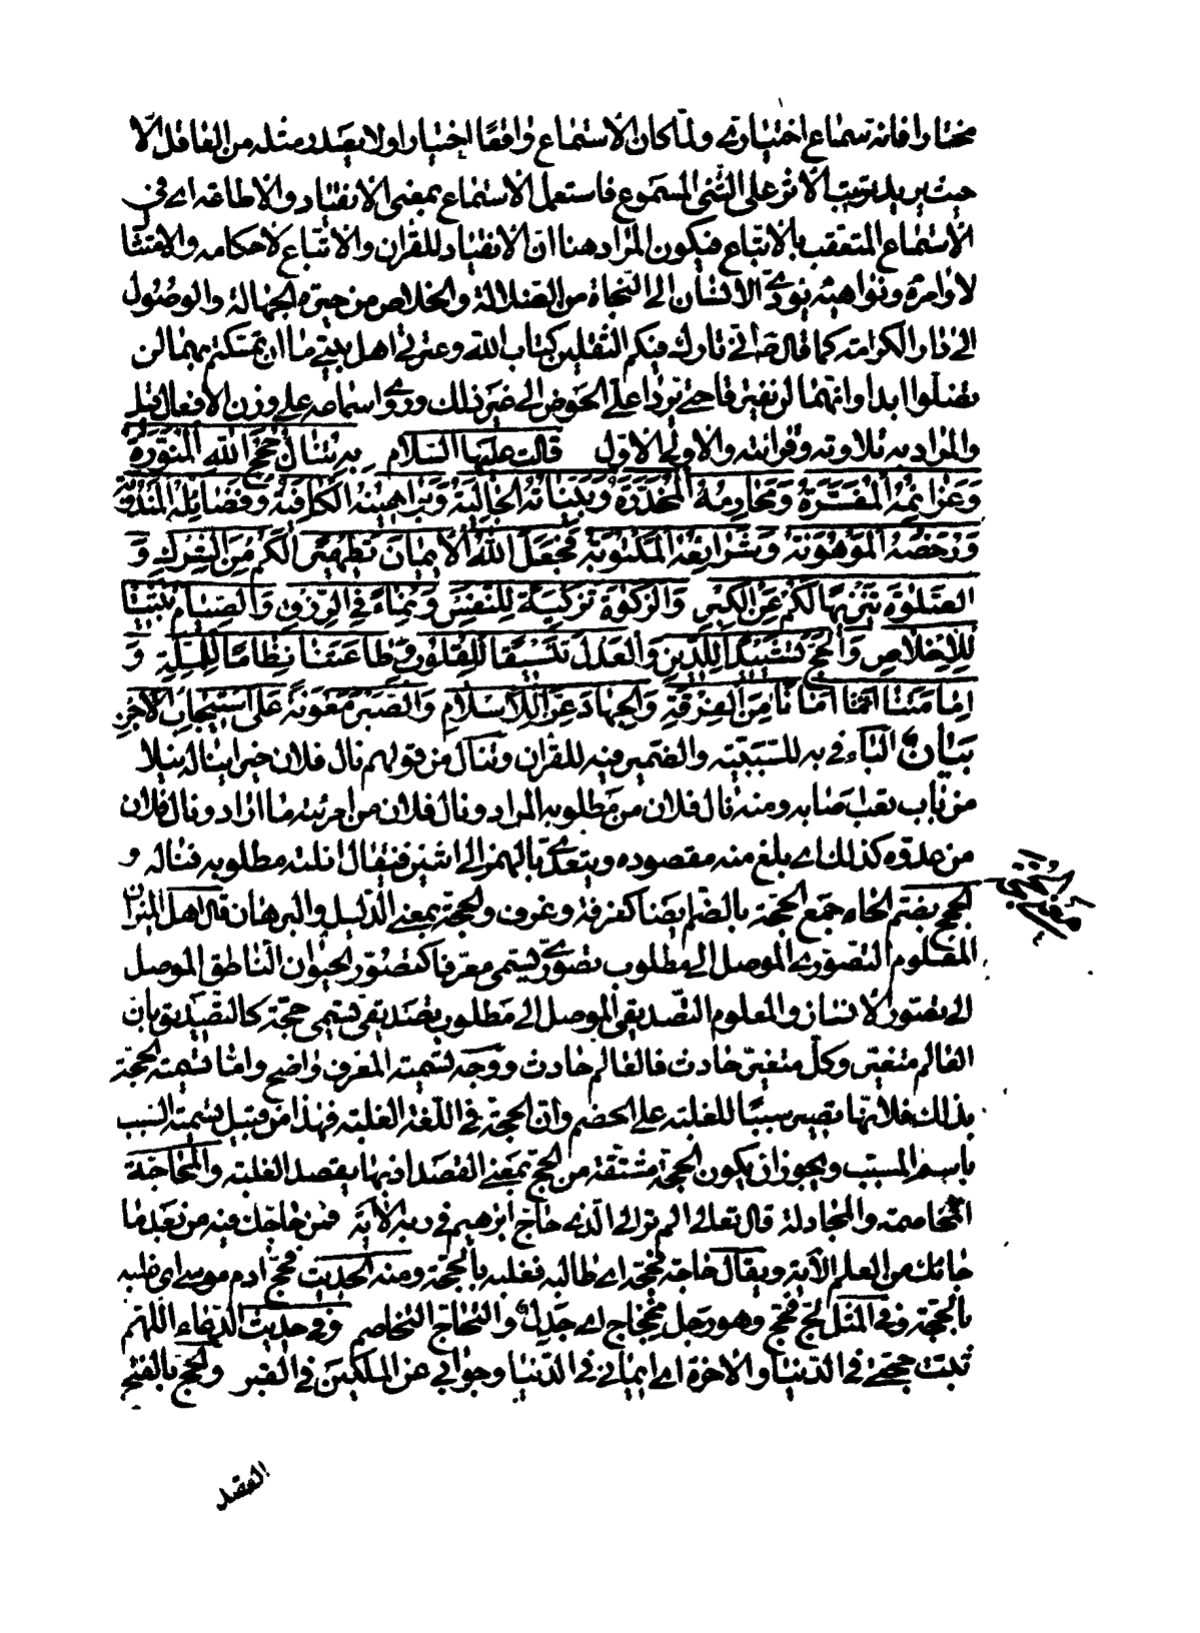 مختارا فانه سماع اختياري ولما كان الاستماع واقعا اختيارا ولا يصدر مثله من العاقل الا
حيث يريد ترتيب الاثر على الشئ المسموع فاستعمل الاستماع بمعنى الانقياد والاطاعة اى فى
الاستماع المتعقب بالاتباع فيكون المراد هنا ان الانقياد للقران والاتباع لاحكامه والامتثا
لاوامره ونواهيه يؤدى الانسان الى النجاة من الضلالة والخلاص من حيرة الجهالة والوصول
الى دار الكرامة كما قال ص انى تارك فيكم الثقلين كتاب الله وعترتى اهل بيتى ما ان تمسكتم بهما لن
تضلوا ابدا وانهما لن يفترقا حتى يردا على الحوض الى غير ذلك وروى اسماعه على وزن الافعال قيل
والمراد به تلاوته وقرائته والاولى الاول قالت عليها السلام به تنال حجج الله المنورة
وعزائمه المفسرة ومحارمه المحذرة وبيناته الجالية وبراهينه الكافية وفضائله المندوبة
ورخصه الموهوبة وشرايعه المكتوبة فجعل الله الايمان تطهيرا لكم من الشرك و
الصلوة تنزيها لكم عن الكبر والزكوة تزكية للنفس ونماء فى الرزق والصيام تثبيتا
للاخلاص والحج تشييدا للدين والعدل تنسيقا للقلوب وطاعتنا نظاما للملة و
امامتنا امانا من الفرقة والجهاد عزا للاسلام والصبر معونة على استيجاب الاجر
بيان الباء فى به للسببية والضمير فيه للقران وتنال من قولهم نال فلان خيرا يناله نيلا
من باب تعب اصابه ومنه نال فلان من مطلوبه المراد ونال فلان من امرئته ما اراد ونال فلان
من عدوه كذلك اى بلغ منه مقصوده ويتعدى بالهمز الى اثنين فيقال انلته مطلوبه فناله و
الحجج بضم الحاء جمع الحجة بالضم ايضا كغرفة وغرف والحجة بمعنى الدليل والبرهان قال اهل الميزان
المعلوم التصورى الموصل الى مطلوب تصورى يسمى معرفا كتصور الحيوان الناطق الموصل
الى تصور الانسان والمعلوم التصديقى الموصل الى مطلوب تصديقى يسمى حجة كالتصديق بان
العالم متغير وكل متغير حادث فالعالم حادث ووجه تسمية المعرف واضح واما تسمية الحجة
بذلك فلانها تصير سببا للغلبة على الخصم وان الحجة فى اللغة الغلبة فهذا من قبيل تسمية السبب
باسم المسبب ويجوز ان يكون الحجة مشتقة من الحج بمعنى القصد اذ بها يقصد الغلبة والمحاجة
المخاصمة والمجادلة قال تعالى الم تر الى الذى حاج ابرهيم فى ربه الاية فمن حاجك فيه من بعد ما
جائك من العلم الاية ويقال حاجه فحجه اى طالبه فغلبه بالحجة ومنه الحديث فحج ادم موسى اى غلبه
بالحجة وفى المثل لج فحج وهو رجل محجاج اى جدل والتحاج التخاصم وفى حديث الدعاء اللهم
ثبت حجتى فى الدنيا والاخرة اى ايمانى فى الدنيا وجوابى عن الملكين فى القبر والحج بالفتح
القصد